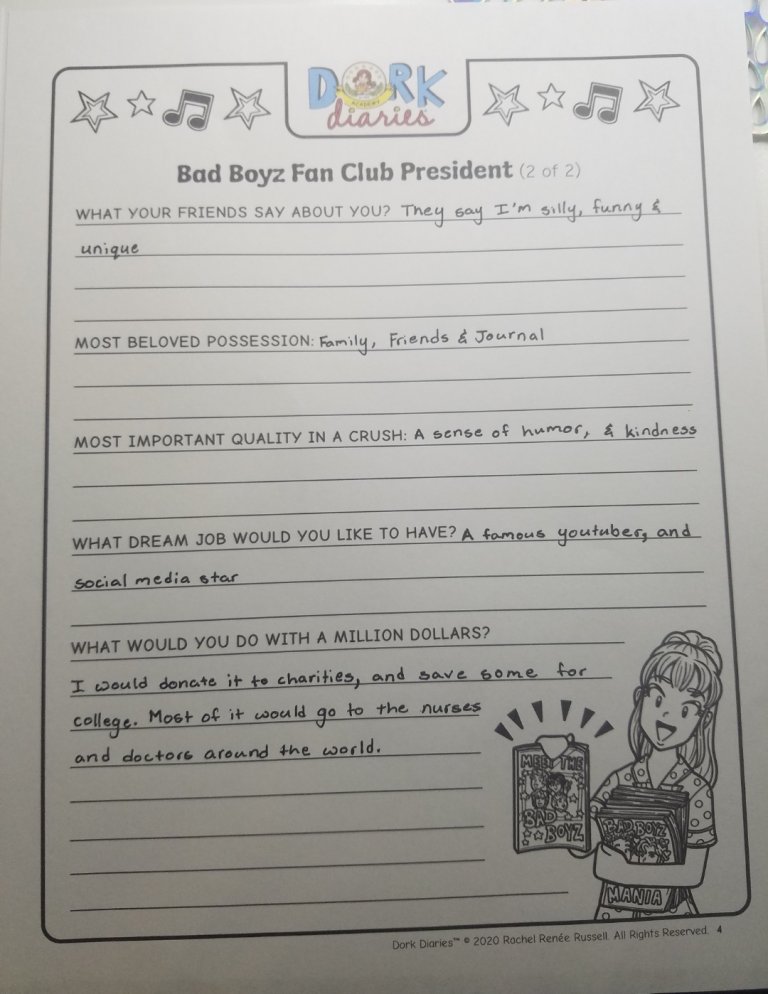 DORK
ACADEMY
diaries
Bad Boyz Fan Club President (2 of 2)
WHAT YOUR FRIENDS SAY ABOUT YOU? They say I'm silly, funny &
unique
MOST BELOVED POSSESSION: Family, Friends & Journal
MOST IMPORTANT QUALITY IN A CRUSH: A sense of humor, & kindness
WHAT DREAM JOB WOULD YOU LIKE TO HAVE? A famous youtuber, and
social media star
WHAT WOULD YOU DO WITH A MILLION DOLLARS?
I would donate it to charities, and save some for
college. Most of it would go to the nurses
and doctors around the world.
MEET THE
BAD
BOYZ
BAD BOYZ
MANIA
Dork Diaries™ © 2020 Rachel Renée Russell. All Rights Reserved. 4